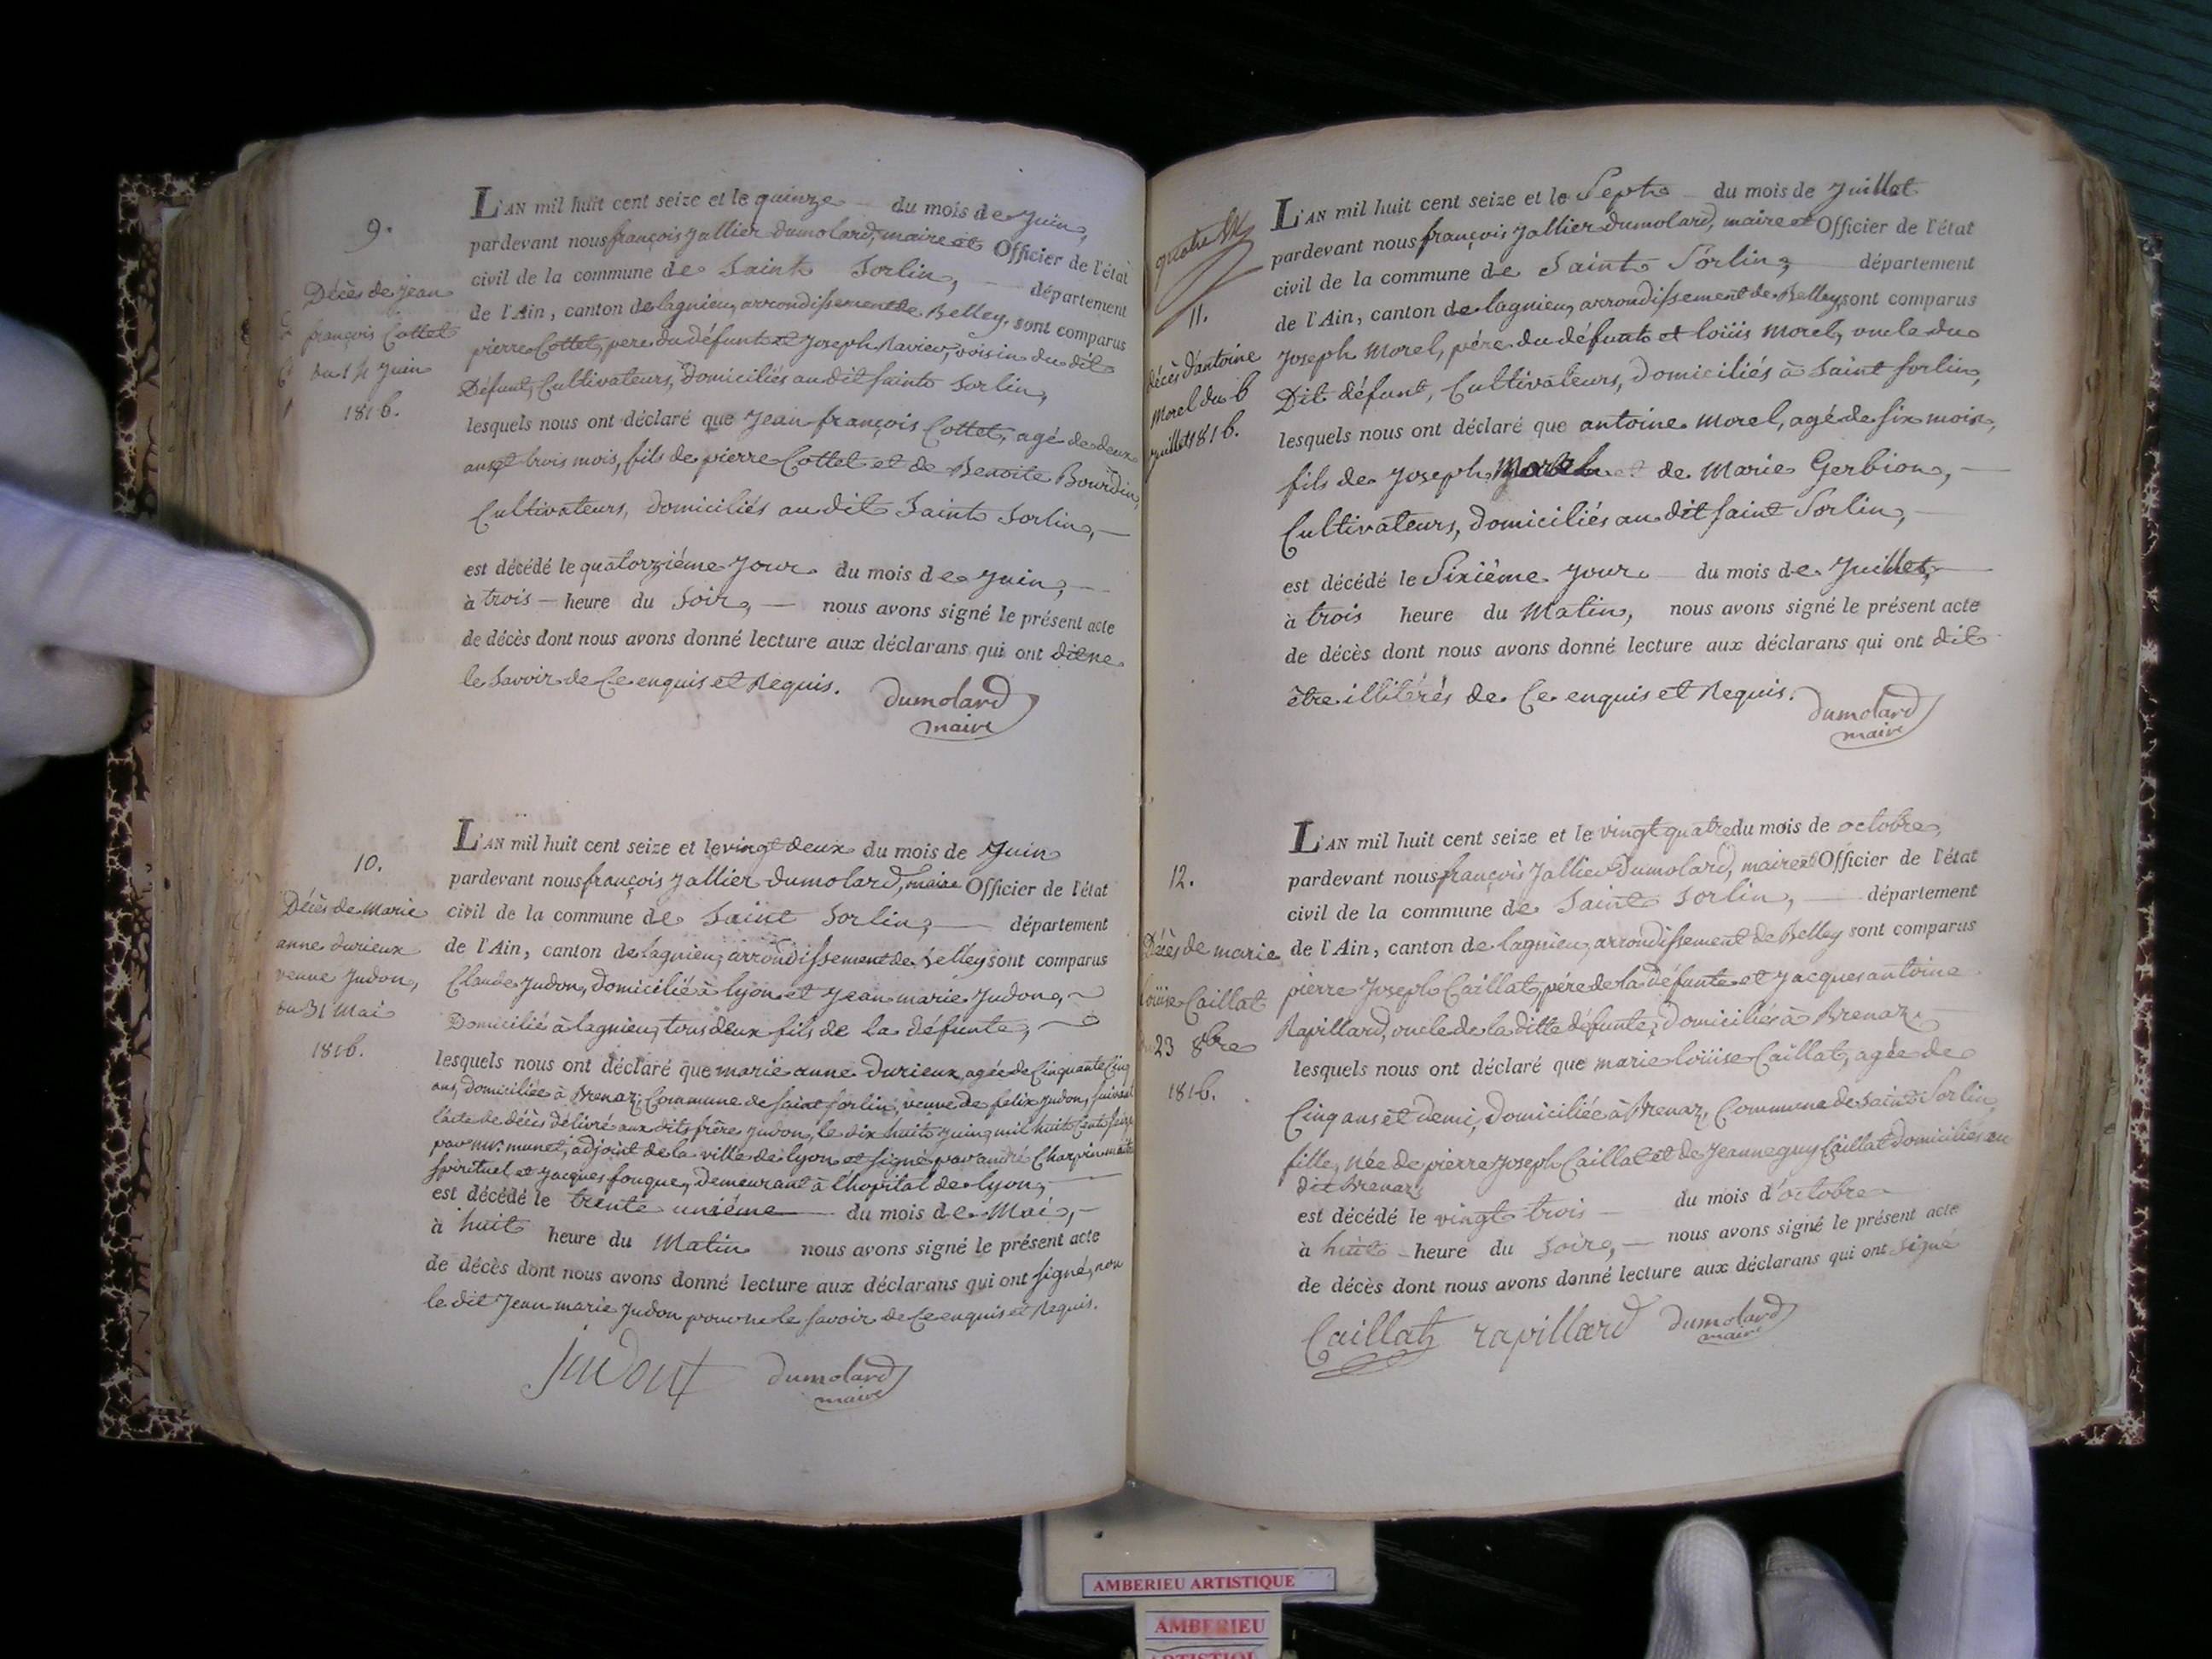 9.
Décès de jean
françois Cottet
du 14 Juin
1816.
L'AN mil huit cent seize et le quinze du mois de Juin,
pardevant nous françois Jallier dumolard, maire et Officier de l'état
civil de la commune de Saint Sorlin, département
de l'Ain, canton de lagnieu, arrondissement de Belley, sont comparus
pierre Cottet, pere du défunt et Joseph Ravier, voisin du dit
Défunt, Cultivateurs, Domiciliés au dit Saint Sorlin,
lesquels nous ont déclaré que Jean françois Cottet, agé de deux
ans et trois mois, fils de pierre Cottet et de Benoite Bourdin,
Cultivateurs, domiciliés au dit Saint Sorlin,
est décédé le quatorziéme Jour du mois de Juin,
à trois heure du Soir, nous avons signé le présent acte
de décès dont nous avons donné lecture aux déclarans qui ont dit ne
le Savoir de Ce enquis et Requis.
dumolard
maire
10.
Décès de Marie
anne durieux
veuve Judon,
du 31 Mai
1816.
L'AN mil huit cent seize et le vingt deux du mois de Juin
pardevant nous françois Jallier dumolard, maire Officier de l'état
civil de la commune de Saint Sorlin, département
de l'Ain, canton de lagnieu, arrondissement de Belley sont comparus
Claude Judon, domicilié à lyon et Jean marie Judon,
Domicilié à lagnieu, tous deux fils de la défunte,
lesquels nous ont déclaré que marie anne durieux, agée de Cinquante Cinq
ans, domiciliée à Brenaz, Commune de saint sorlin, veuve de felix Judon, suivant
l'acte de décès délivré aux dits frère Judon, le dix huit Juin mil huit Cent Seize
par mr. munet, adjoint de la ville de lyon et signé par andré Charpin
spirituel et Jacques fouque, demeurant à l'hopital de lyon,
est décédé le trente uniéme du mois de Mai,
à huit heure du Matin nous avons signé le présent acte
de décès dont nous avons donné lecture aux déclarans qui ont signé, non
le dit Jean marie Judon pour ne le savoir de Ce enquis et Requis.
Judon
dumolard
maire
11.
décès d'antoine
Morel du 6
juillet 1816.
L'AN mil huit cent seize et le Sept du mois de Juillet
pardevant nous françois Jallier dumolard, maire et Officier de l'état
civil de la commune de Saint Sorlin, département
de l'Ain, canton de lagnieu, arrondissement de Belley, sont comparus
Joseph Morel, pére du défunt et loüis Morel, oncle du
Dit défunt, Cultivateurs, domiciliés à Saint Sorlin,
lesquels nous ont déclaré que antoine Morel, agé de six mois,
fils de Joseph Morel et de Marie Gerbion,
Cultivateurs, domiciliés au dit saint Sorlin,
est décédé le Sixiéme Jour du mois de Juillet,
à trois heure du Matin, nous avons signé le présent acte
de décès dont nous avons donné lecture aux déclarans qui ont dit
être illitérés de Ce enquis et Requis.
dumolard
maire
12.
Décès de marie
loüise Caillat
23 8bre
1816.
L'AN mil huit cent seize et le vingt quatre du mois de octobre,
pardevant nous françois Jallier Dumolard, maire et Officier de l'état
civil de la commune de Saint Sorlin, département
de l'Ain, canton de lagnieu, arrondissement de Belley sont comparus
pierre Joseph Caillat, pére de la défunte et Jacques antoine
Rapillard, oncle de la ditte défunte, domiciliés à Brenaz,
lesquels nous ont déclaré que marie loüise Caillat, agée de
Cinq ans et demi, domiciliée à Brenaz, Commune de Saint Sorlin,
fille, née de pierre Joseph Caillat et de Jeanne guy Caillat domiciliés au
dit Brenaz
est décédé le vingt trois du mois d'octobre
à huit heure du Soir, nous avons signé le présent acte
de décès dont nous avons donné lecture aux déclarans qui ont signé
Caillat
rapillard
dumolard
maire
AMBERIEU ARTISTIQUE
AMBERIEU
ARTISTIQUE